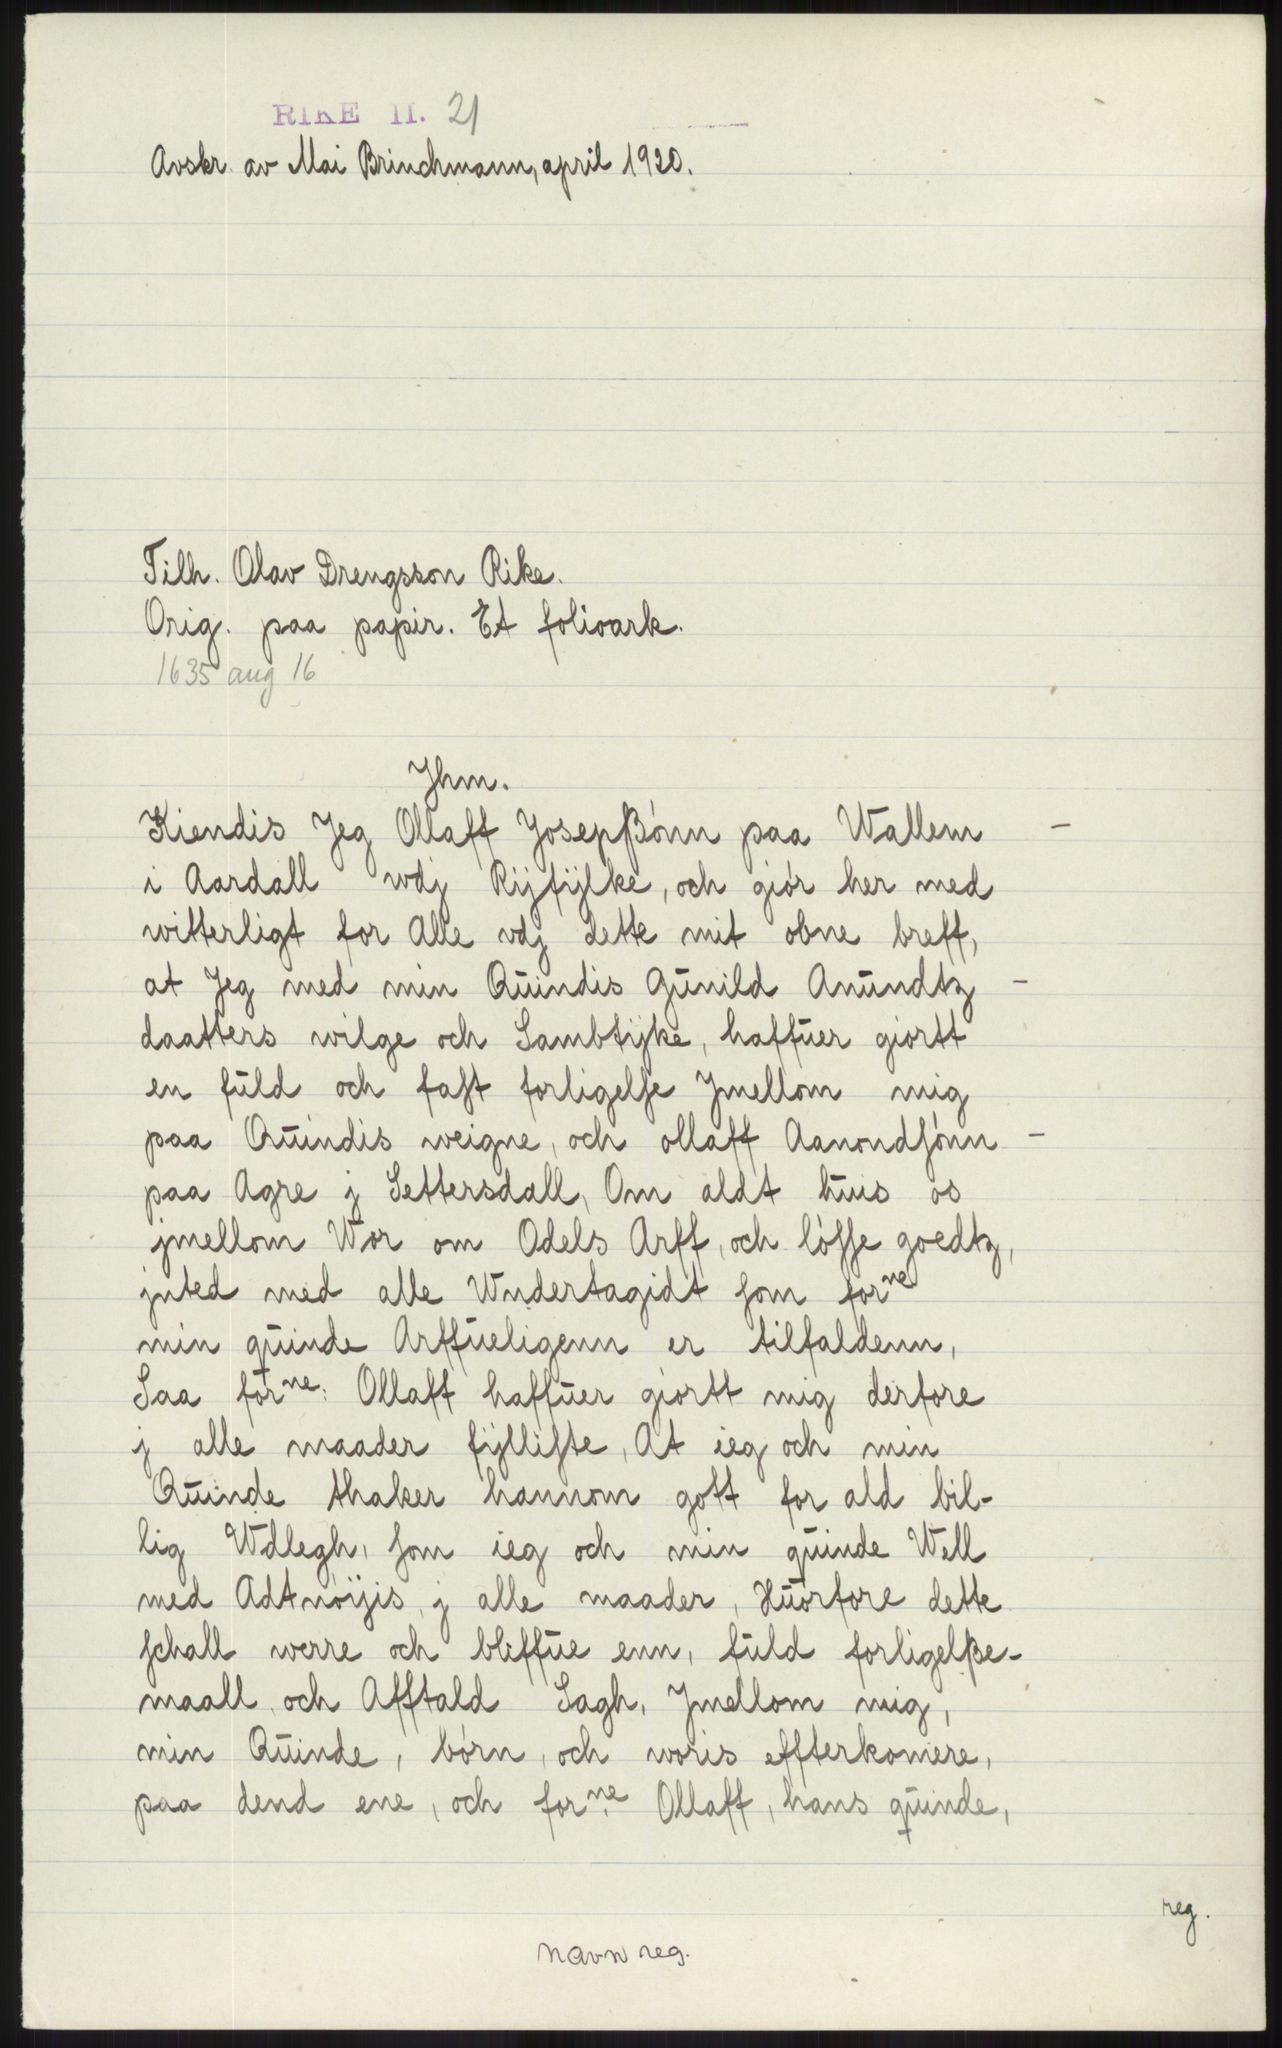 RIKE II. 21
Avskr. av Mai Brinchmann, april 1920.
Tilh. Olav Drengsson Rike.
Orig. paa papir. Et folioark.
1635 aug 16
Jhm.
Kiendis Jeg Ollaff Josepßónn paa Wallem —
i Aardall wdj Rijfijlke, och giór her med
witterligt for Alle vdj dette mit obne breff,
at Jeg med min Quindis Gunild Anundtz —
daatters wilge och Sambtijke, haffuer giortt
en fuld och faſt forligelſe Jmellom mig
paa Quindis weigne, och ollaff Aanondſónn —
paa Agre j Settersdall, Om aldt huis os
jmellom Wor om Odels Arff, och lóſſe goedtz,
jnted med alle Wndertagidt ſom forne
min quinde Arffueligenn er tilfaldenn,
Saa forne: Ollaff haffuer giortt mig derfore
j alle maader fijlliſte, At ieg och min
Quinde thaker hannom gott for ald bil-
lig Wdlegh, ſom ieg och min quinde Well
med Adtnóijis, j alle maader, Huorfore dette
ſchall werre och bliffue enn, fuld forligelße-
maall, och Afftald Sagh, Jmellom mig,
min Quinde, bórn, och woris effterkomere,
paa dend ene, och forne Ollaff, hans quinde,
reg.
Navn reg.